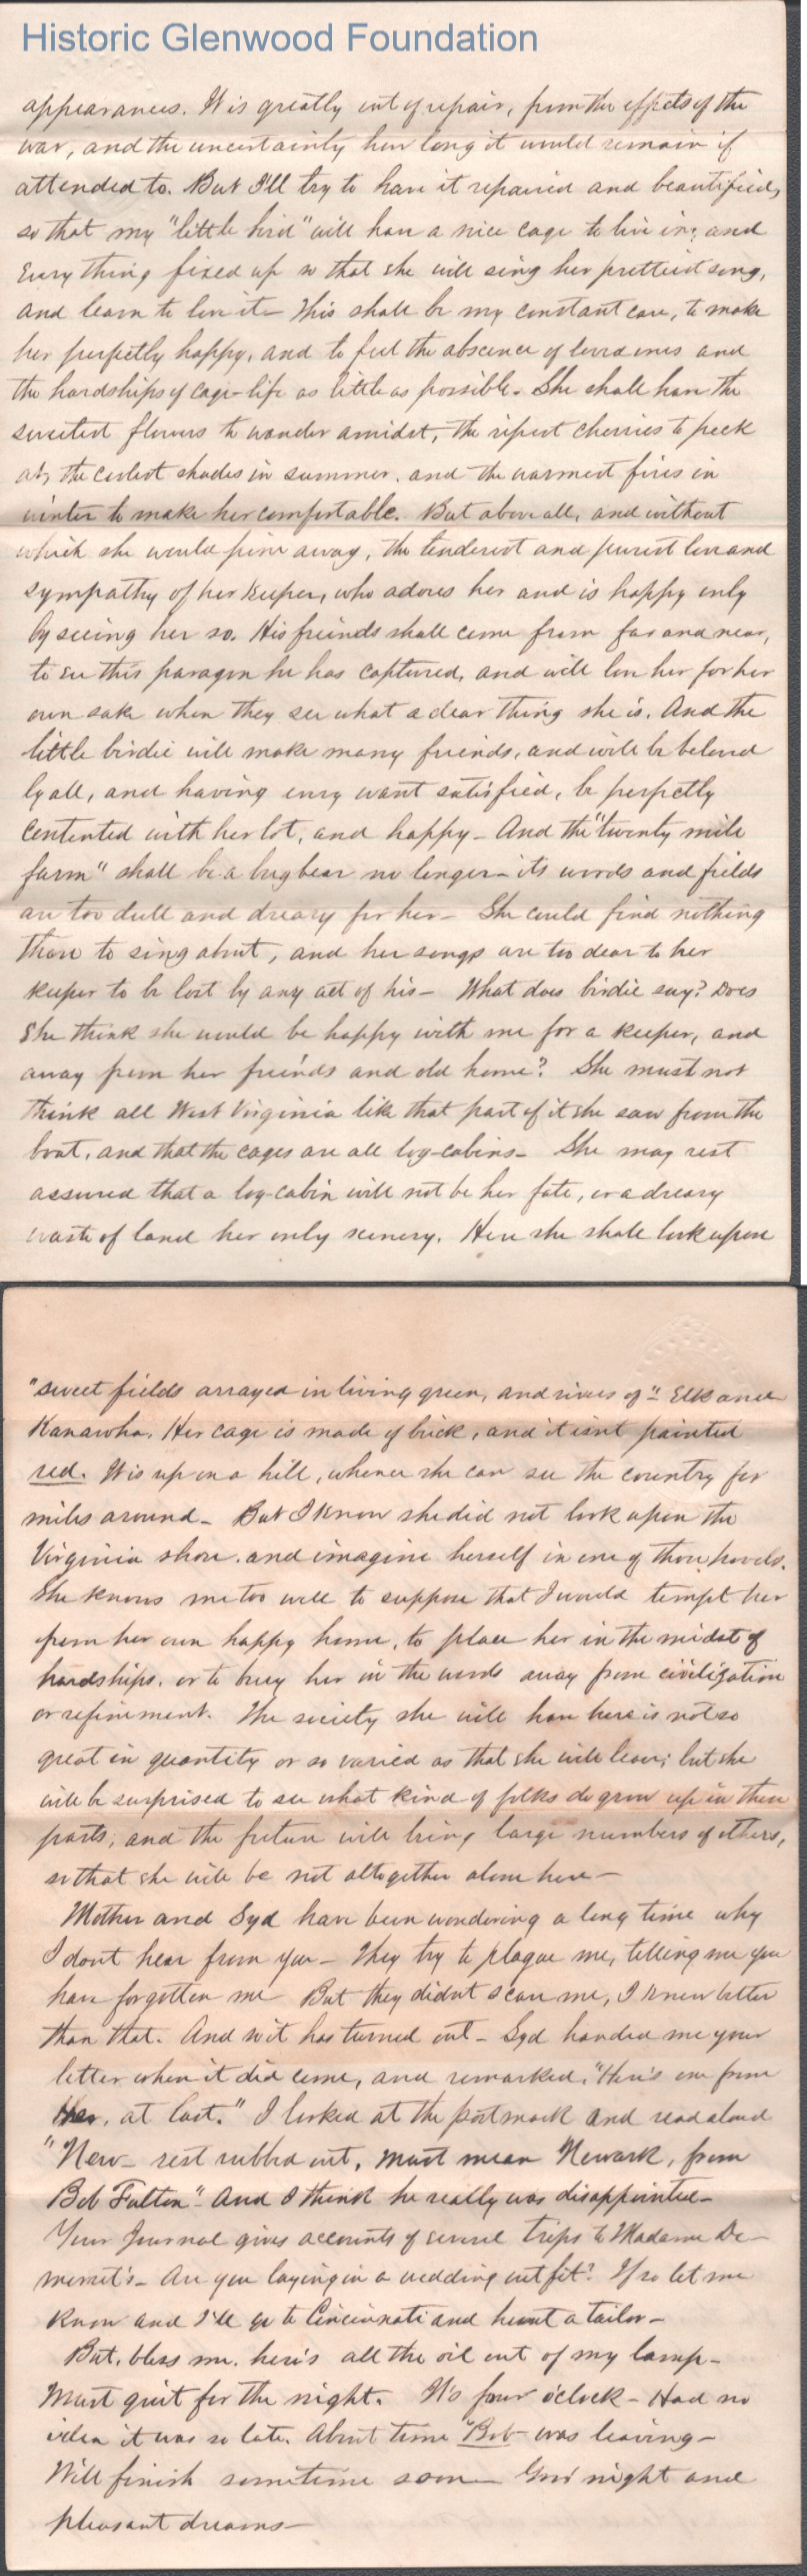 Historic Glenwood Foundation
appearances. It is greatly out of repair, from the effects of the
war, and the uncertainty how long it would remain if
attended to. But I'll try to have it repaired and beautified,
so that my "little bird" will have a nice cage to live in; and
every thing fixed up so that she will sing her prettiest song,
and learn to love it— This shall be my constant care, to make
her perfectly happy, and to feel the absence of loved ones and
the hardships of cage-life as little as possible. She shall have the
sweetest flowers to wander amidst, the ripest cherries to peck
at, the coolest shades in summer, and the warmest fires in
winter to make her comfortable. But above all, and without
which she would pine away, the tenderest and purest love and
sympathy of her keeper, who adores her and is happy only
by seeing her so. His friends shall come from far and near,
to see this paragon he has captured, and will love her for her
own sake when they see what a dear thing she is. And the
little birdie will make many friends, and will be beloved
by all, and having every want satisfied, be perfectly
contented with her lot, and happy— And the "twenty mile
farm" shall be a bugbear no longer— its woods and fields
are too dull and dreary for her— She could find nothing
there to sing about, and her songs are too dear to her
keeper to be lost by any act of his— What does birdie say? Does
she think she would be happy with me for a keeper, and
away from her friends and old home? She must not
think all West Virginia like that part of it she saw from the
boat, and that the cages are all log-cabins— She may rest
assured that a log-cabin will not be her fate, or a dreary
waste of land her only scenery. Here she shall look upon
"sweet fields arrayed in living green, and rivers of" Elk and
Kanawha. Her cage is made of brick, and it isnt painted
red. It is up on a hill, whence she can see the country for
miles around— But I know she did not look upon the
Virginia shore, and imagine herself in one of those hovels.
She knows me too well to suppose that I would tempt her
from her own happy home, to place her in the midst of
hardships, or to bury her in the woods away from civilization
or refinement. The society she will have here is not so
great in quantity or so varied as that she will leave; but she
will be surprised to see what kind of folks do grow up in these
parts, and the future will bring large numbers of others,
so that she will be not altogether alone here—
Mother and Syd have been wondering a long time why
I dont hear from you— They try to plague me, telling me you
have forgotten me But they didnt scare me, I knew better
than that. And so it has turned out— Syd handed me your
letter when it did come, and remarked, "Here's one from
Her, at last." I looked at the postmark and read aloud
"New— rest rubbed out, must mean Newark, from
Bob Fulton"— And I think he really was disappointed—
Your Journal gives accounts of several trips to Madame De-
merrit's— Are you laying in a wedding outfit? If so let me
know and I'll go to Cincinnati and hunt a tailor—
But, bless me, here's all the oil out of my lamp—
Must quit for the night. It's four o'clock— Had no
idea it was so late. About time "Bob" was leaving—
Will finish sometime soon— Good night and
pleasant dreams—